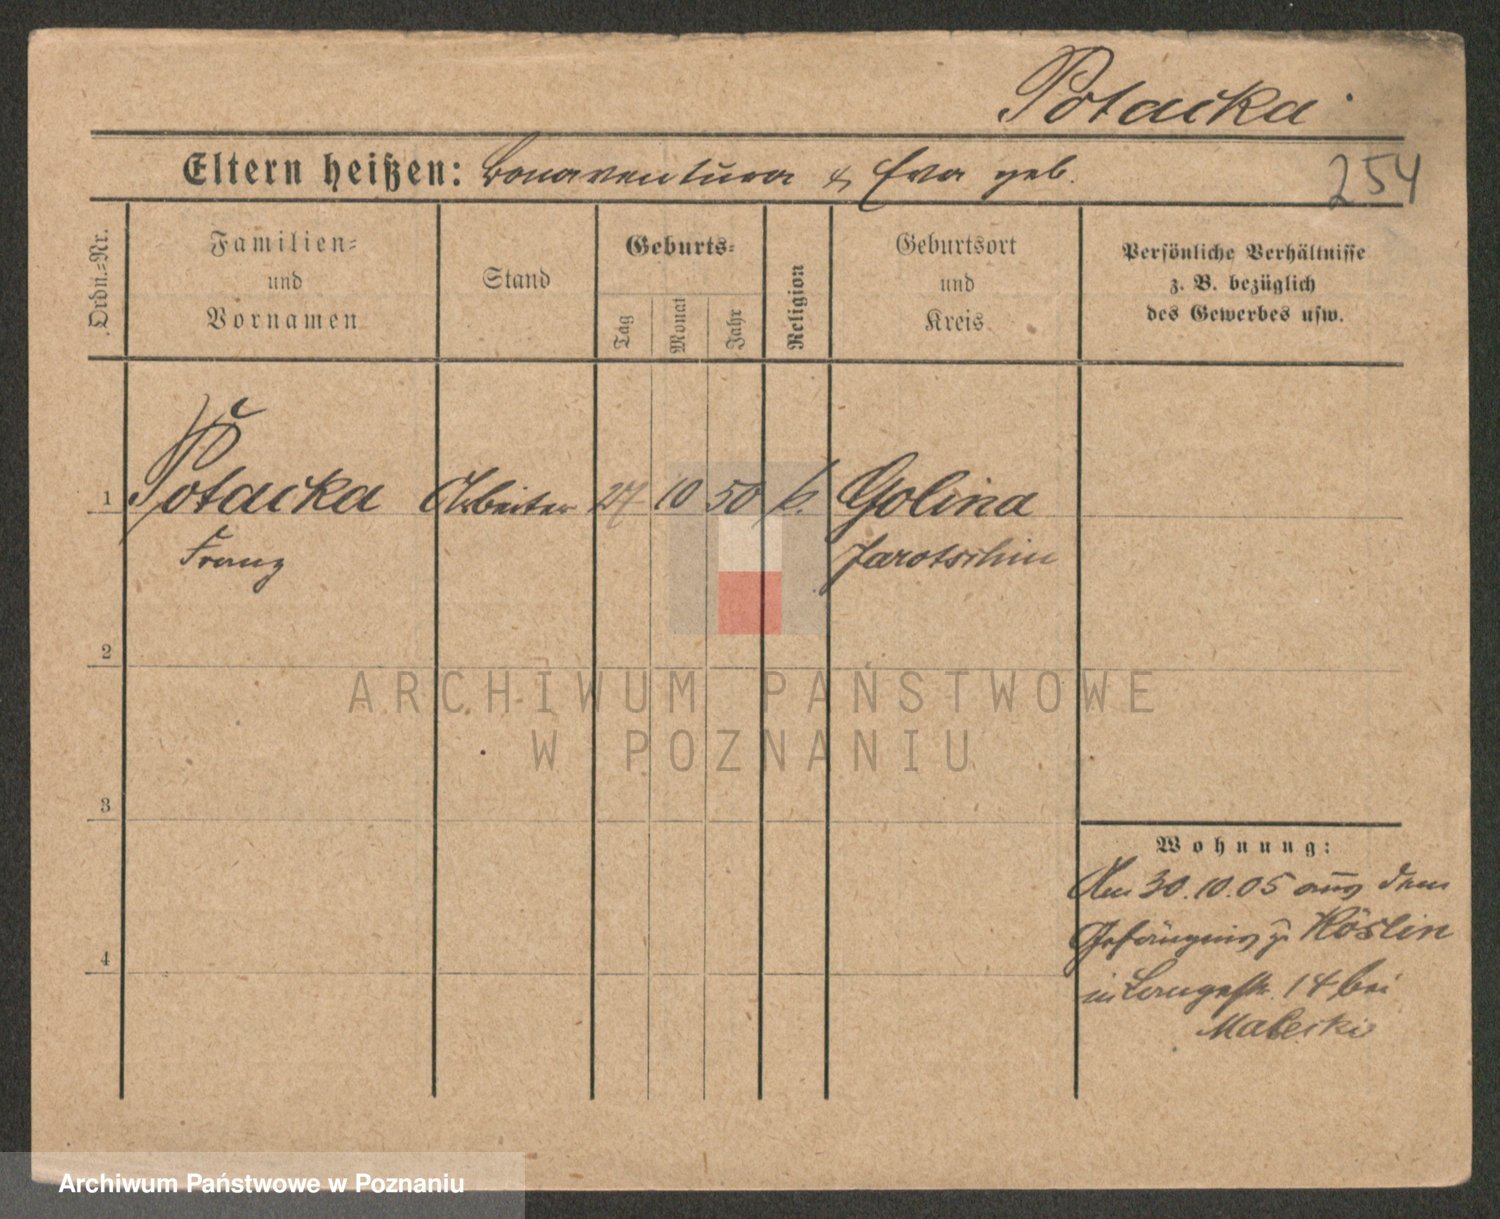 Potacka.
Eltern heißen: Bonaventura & Eva geb.
254
Ordn.=Nr.
Familien=
und
Vornamen
Stand
Geburts=
Tag
Monat
Jahr
Religion
Geburtsort
und
Kreis
Persönliche Verhältnisse
z. B. bezüglich
des Gewerbes usw.
1 Potacka Arbeiter 27 10 50 k. Golina
Franz Jarotschin
2
ARCHIWUM PAŃSTWOWE
W POZNANIU
3
Wohnung:
Am 30.10.05 aus dem
Gefängnis z. Köslin
4
in Langestr. 14 bei
Malecki
Archiwum Państwowe w Poznaniu